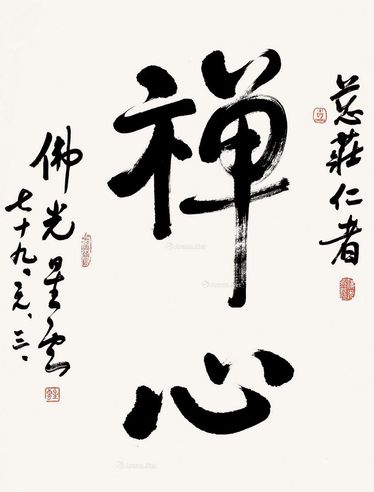 慈莊仁者
禪心
佛光星雲
七十九、元、三、